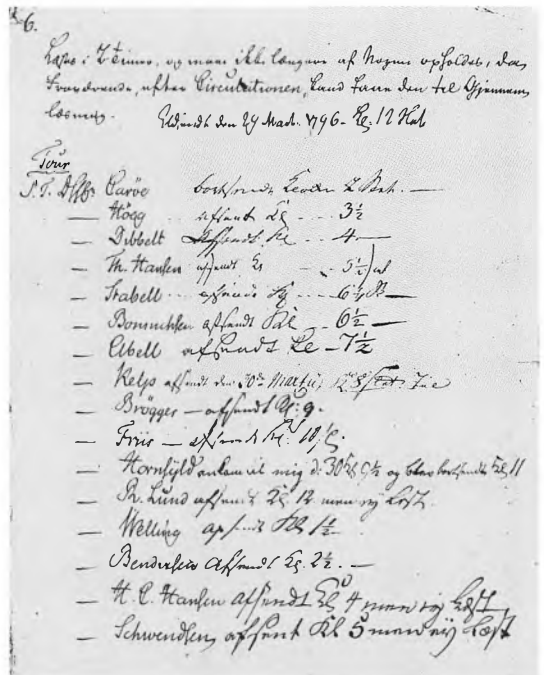 6.
Læses i 2 Timer, og maae ikke længere af Nogen opholdes, da
Svarværende, efter Circulationen, kand faae den til Gjennem
læsning. den 29 Mart. 1796. Kl: 12 Slet
Tour
S. T. DHr. Carøe bortsendt Kl. 2 Slet. —
— Högg afsent Kl --- 3½
— Dibbelt Affendt Kl --- 4 —
— Th. Hansen afsendt Kl --- 5½
— Stabell --- afsendt Kl --- 6½ —
— afsendt Kl --- 6½ —
— Abell afsendt Kl - 7½
— Kelp afsendt den 30te Martii, 8
— Brøgger — afsendt Kl: 9.
— Friis — afsendt Kl: 10½.
— Hornsyld ankom til mig d: 30 Kl 9½ og blev bortsendt Kl 11
— R. Lund afsendt Kl. 12 men ej læst.
— Welling afsendt Kl 1½
— Bendixsen Afsendt Kl. 2½. —
— H. C. Hansen afsendt Kl 4 men ej læst
— Schwendsen, afsent Kl 5 men ej læst